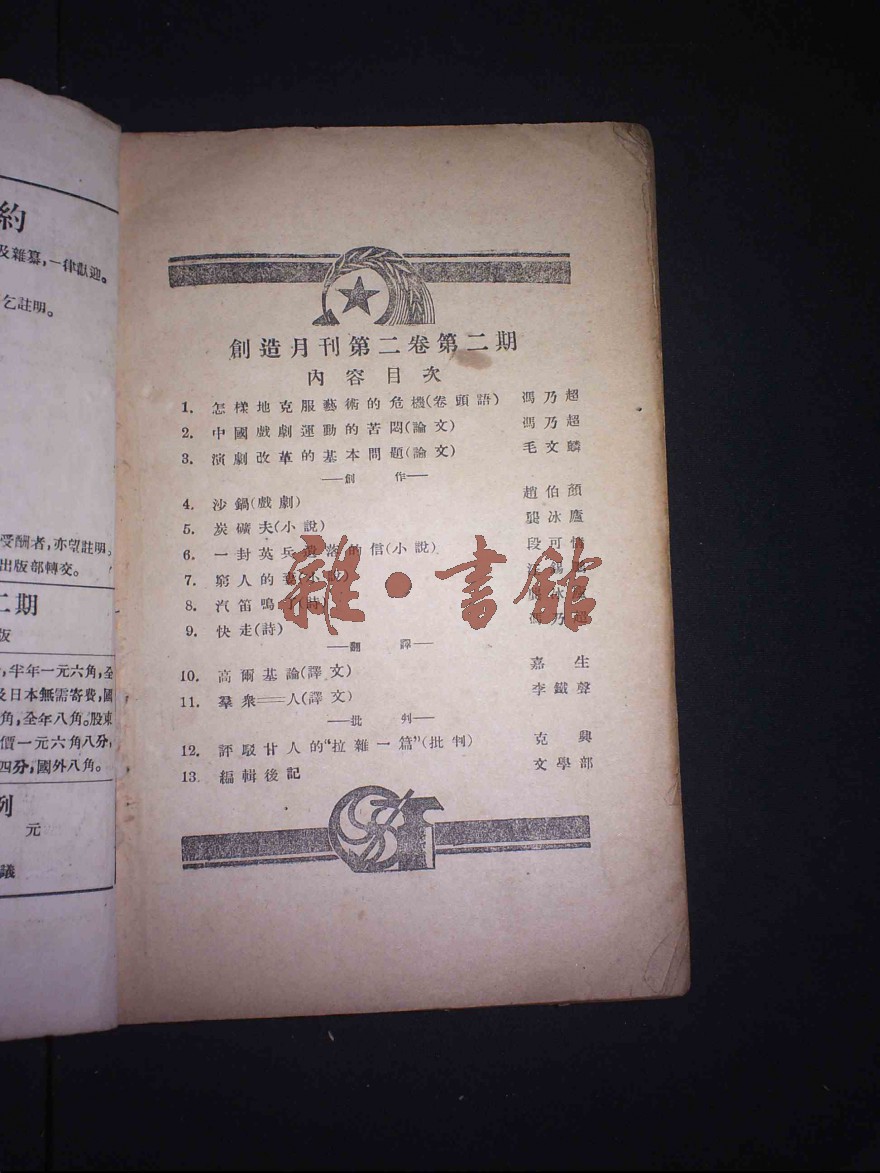 約
及雜纂,一律歡迎。
乞註明。
受酬者,亦望註明。
出版部轉交。
二期
版
半年一元六角,全
及日本無需寄費,國
角,全年八角。股東
價一元六角八分,
四分,國外八角。
例
元
議
創造月刊第二卷第二期
內容目次
1. 怎樣地克服藝術的危機(卷頭語) 馮乃超
2. 中國戲劇運動的苦悶(論文) 馮乃超
3. 演劇改革的基本問題(論文) 毛文麟
——創 作——
4. 沙鍋(戲劇) 趙伯顏
5. 炭礦夫(小說) 龔冰廬
6. 一封英兵遺落的信(小說) 段可情
7. 窮人的(小說)
8. 汽笛鳴了(詩)
9. 快走(詩) 馮乃超
——翻 譯——
10. 高爾基論(譯文) 嘉生
11. 羣衆══人(譯文) 李鐵聲
——批 判——
12. 評駁甘人的“拉雜一篇”(批判) 克興
13. 編輯後記 文學部
雜·書館